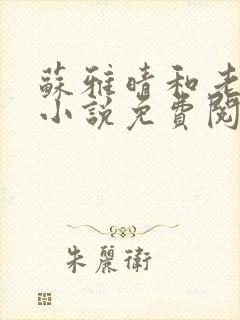 蘇雅晴和老
小說免費閱
朱麗衛